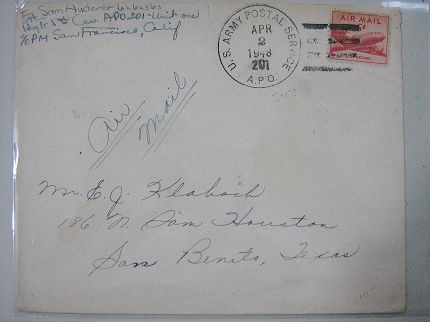 Sam
Hq 1st 5th Cav. APO 201-Unit one
c/o PM San Francisco, Calif
U.S. ARMY POSTAL SERVICE
APR
2
1948
201
A.P.O.
AIR MAIL
Air
Mail
Mr. E. J. Klaboch
186 N. Sam Houston
San Benito, Texas